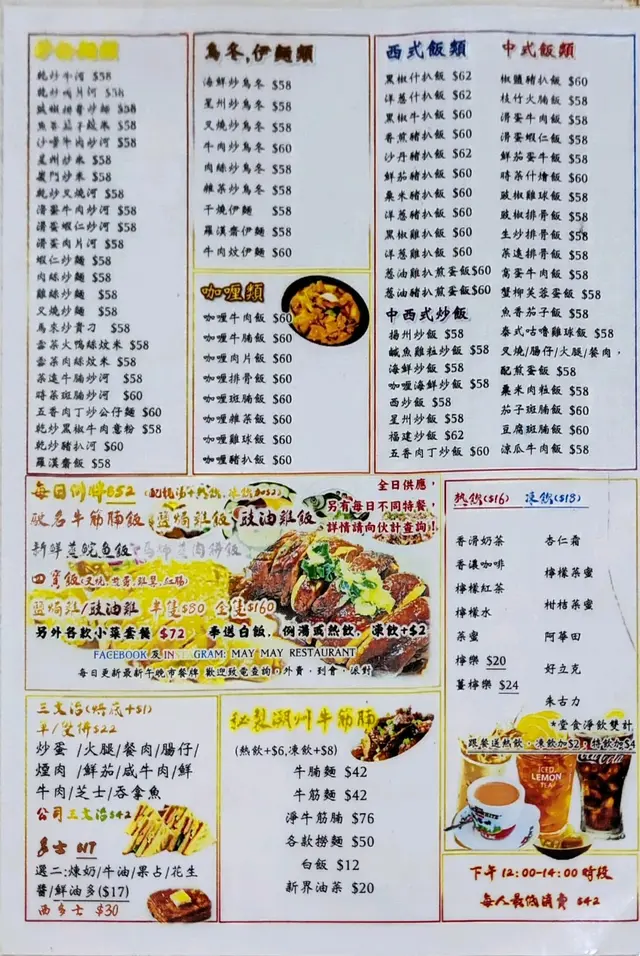 乾炒牛河 $58
乾炒肉片河 $58
豉椒排骨炒麵 $58
沙嗲牛肉炒河 $58
星州炒米 $58
廈門炒米 $58
乾炒叉燒河 $58
滑蛋牛肉炒河 $58
滑蛋蝦仁炒河 $58
滑蛋肉片河 $58
蝦仁炒麵 $58
肉絲炒麵 $58
雞絲炒麵 $58
叉燒炒麵 $58
馬來炒貴刁 $58
雪菜火鴨絲炆米 $58
雪菜肉絲炆米 $58
菜遠牛腩炒河 $58
時菜斑腩炒河 $60
五香肉丁炒公仔麵 $60
乾炒黑椒牛肉意粉 $58
乾炒豬扒河 $60
羅漢齋飯 $58
烏冬,伊麵類
海鮮炒烏冬 $58
星州炒烏冬 $58
叉燒炒烏冬 $58
牛肉炒烏冬 $60
肉絲炒烏冬 $58
雜菜炒烏冬 $58
干燒伊麵 $58
羅漢齋伊麵 $58
牛肉炆伊麵 $60
咖喱類
咖喱牛肉飯 $60
咖喱牛腩飯 $60
咖喱肉片飯 $60
咖喱排骨飯 $60
咖喱斑腩飯 $60
咖喱雜菜飯 $60
咖喱雞球飯 $60
咖喱豬扒飯 $60
西式飯類
黑椒什扒飯 $62
洋蔥什扒飯 $62
黑椒牛扒飯 $60
香煎豬扒飯 $60
沙丹豬扒飯 $62
鮮茄豬扒飯 $60
粟米豬扒飯 $60
洋蔥豬扒飯 $60
黑椒雞扒飯 $60
洋蔥雞扒飯 $60
蔥油雞扒煎蛋飯$60
蔥油豬扒煎蛋飯$60
中西式炒飯
揚州炒飯 $58
鹹魚雞粒炒飯 $58
海鮮炒飯 $58
咖喱海鮮炒飯 $58
西炒飯 $58
星州炒飯 $58
福建炒飯 $62
五香肉丁炒飯 $60
中式飯類
椒鹽豬扒飯 $60
枝竹火腩飯 $58
滑蛋牛肉飯 $58
滑蛋蝦仁飯 $58
鮮茄蛋牛飯 $58
時菜什燴飯 $60
豉椒雞球飯 $58
豉椒排骨飯 $58
生炒排骨飯 $58
菜遠排骨飯 $58
窩蛋牛肉飯 $58
蟹柳芙蓉蛋飯 $58
魚香茄子飯 $58
泰式咕嚕雞球飯 $58
叉燒/腸仔/火腿/餐肉,
配煎蛋飯 $58
粟米肉粒飯 $58
茄子斑腩飯 $60
豆腐斑腩飯 $60
涼瓜牛肉飯 $58
每日例牌$52
馳名牛筋腩飯 鹽焗雞飯 豉油雞飯
四寶飯
鹽焗雞/豉油雞 半隻$80 全隻$160
另外各款小菜套餐 $72 奉送白飯,例湯或熱飲,凍飲+$2
FACEBOOK 及 INSTAGRAM: MAY MAY RESTAURANT
每日更新最新午晚市餐牌 歡迎致電查詢。外賣.到會.派對
全日供應,
另有每日不同特餐,
詳情請向伙計查詢!
熱飲($16) 凍飲($18)
香滑奶茶
香濃咖啡
檸檬紅茶
檸檬水
菜蜜
檸樂 $20
薑檸樂 $24
杏仁霜
檸檬菜蜜
柑桔菜蜜
阿華田
好立克
朱古力
*堂食淨飲雙計
跟餐送熱飲.凍飲加$2,特飲加$4
ICED
LEMON
TEA
Coca-Cola
三文治(烘底+$1)
單/雙拼$22
炒蛋 /火腿/餐肉/腸仔/
煙肉 /鮮茄/咸牛肉/鮮
牛肉/芝士/吞拿魚
公司三文治$42
多士 $17
選二:煉奶/牛油/果占/花生
醬/鮮油多($17)
西多士 $30
秘製潮州牛筋腩
(熱飲+$6,凍飲+$8)
牛腩麵 $42
牛筋麵 $42
淨牛筋腩 $76
各款撈麵 $50
白飯 $12
新界油菜 $20
下午12:00-14:00時段
每人最低消費 $42